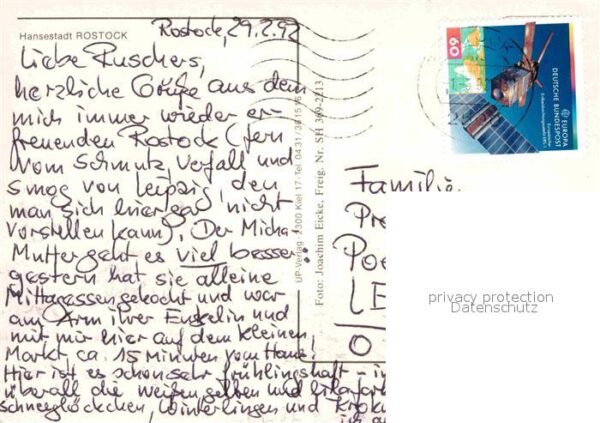 Hansestadt ROSTOCK
Rostock, 29.2.92
Liebe Ruschers,
herzliche Grüße aus dem
mich immer wieder er-
freuenden Rostock (fern
vom Schmutz, Verfall und
Smog von Leipzig, den
man sich hier gar nicht
vorstellen kann). Der Micha-
Mutter geht es viel besser
gestern hat sie alleine
Mittagessen gekocht und war
am Arm ihrer Enkelin und
mit mir hier auf dem kleinen
Markt, ca. 15 Minuten vom Haus!
Hier ist es schon sehr frühlingshaft - in
überall die weißen gelben und
Schneeglöckchen, Winterlingen und
UP-Verlag 2300 Kiel 17
Foto: Joachim Eicke, Freig. Nr. SH
60
EUROPA
DEUTSCHE BUNDESPOST
Familie
Pr
Po
LE
O
privacy protection
Datenschutz